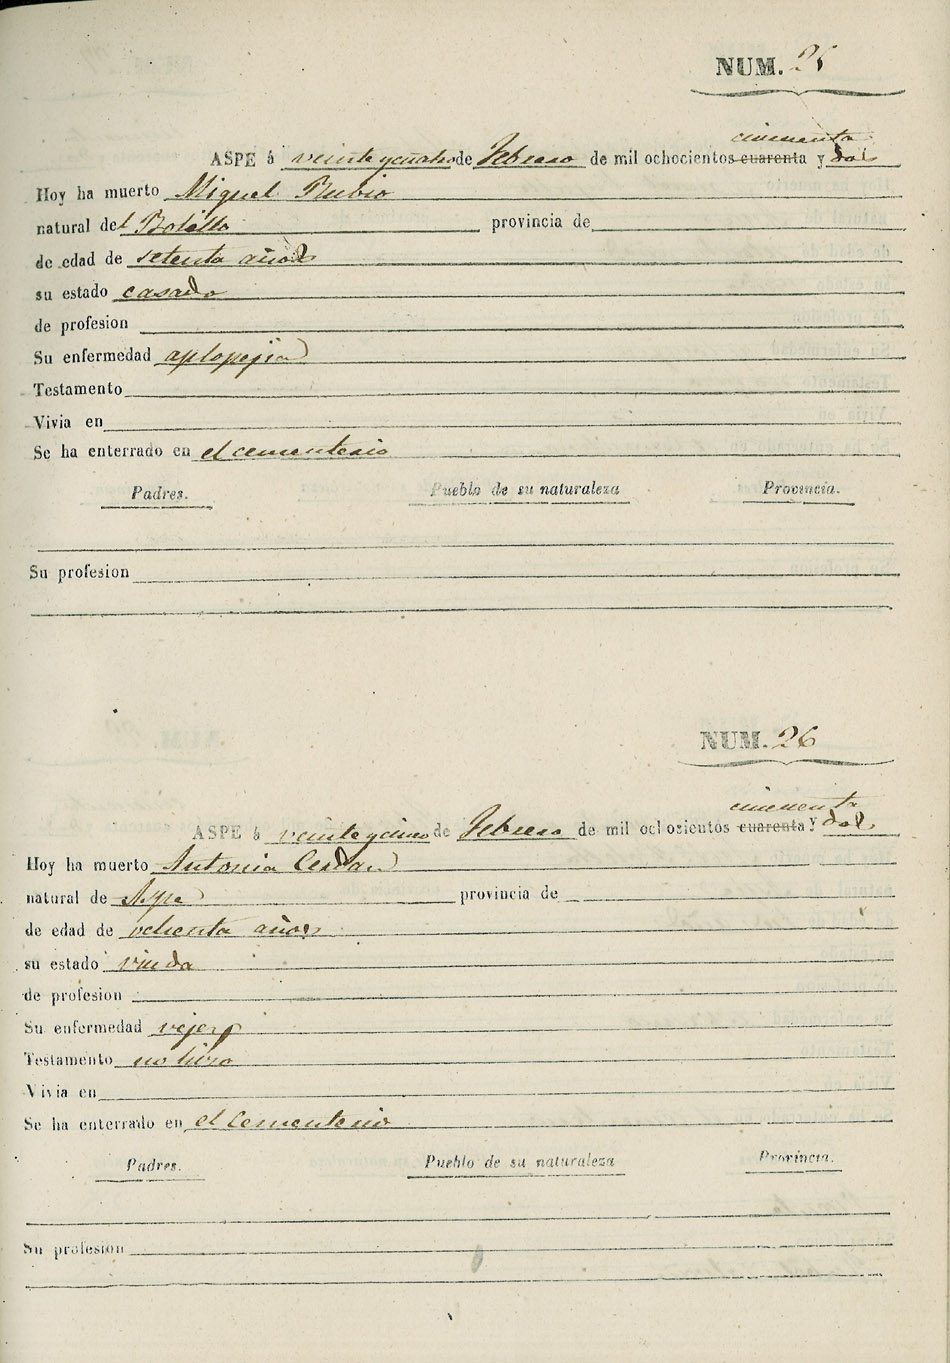 NUM. 25
cincuenta
ASPE á veinte y cuatro de Febrero de mil ochocientos cuarenta y dos
Hoy ha muerto Miguel Rubio
natural del provincia de
de edad de setenta años
su estado casado
de profesion
Su enfermedad aplopegia
Testamento
Vivia en
Se ha enterrado en el cementerio
Padres. Pueblo de su naturaleza Provincia.
Su profesion
NUM. 26
cincuenta
ASPE á veinte y cinco de Febrero de mil ochosientos cuarenta y dos
Hoy ha muerto Antonia Cerdan
natural de Aspe provincia de
de edad de ochenta años
su estado viuda
de profesion
Su enfermedad vejez
Testamento no hizo
Vivia en
Se ha enterrado en el cementerio
Padres. Pueblo de su naturaleza Provincia.
Su profesion